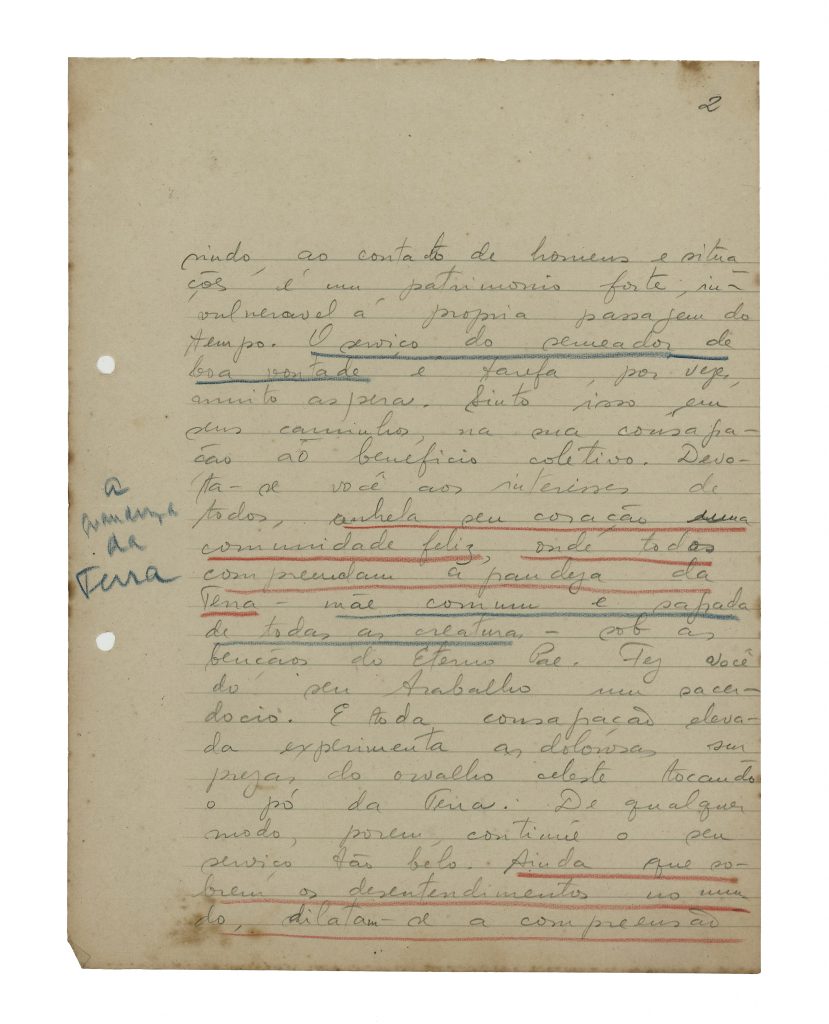 2
rindo, ao contacto de homens e situa
ções é um patrimonio forte, in-
vulneravel á propria passagem do
tempo. O serviço do semeador de
boa vontade é tarefa, por vezes,
muito aspera. Sinto isso em
seus caminhos, na sua consagra-
ção ao beneficio coletivo. Devo-
ta-se você aos interesses de
todos, anhela seu coração uma
comunidade feliz, onde todos
compreendam a grandeza da
Terra - mãe comum e sagrada
de todas as creaturas - sob as
bençãos do Eterno Pae. Fez você
do seu trabalho um sacer-
docio. E toda consagração eleva-
da experimenta as dolorosas sur
prezas do orvalho celeste tocando
o pó da Terra. De qualquer
modo, porem, continúe o seu
serviço tão belo. Ainda que so-
brem os desentendimentos no mun
do, dilatam-se a compreensão
a
grandeza
da
Terra